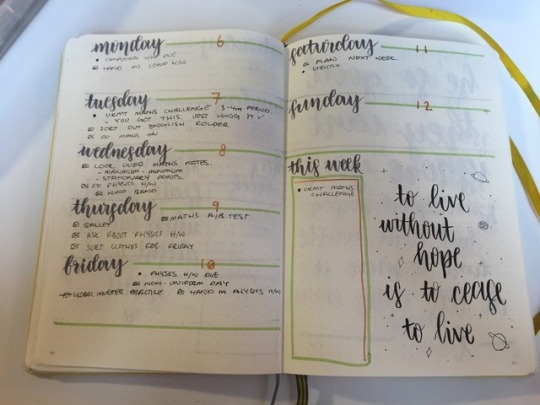 monday 6
COMPUTING H/W DUE
HAND IN COMP H/W
tuesday 7
UKMT MATHS CHALLENGE 3-4th PERIOD.
- YOU GOT THIS JUST WING IT
SORT OUT ENGLISH FOLDER
DO
wednesday 8
LOOK OVER MATHS NOTES.
- MAXIMUM - MINIMUM
- STATIONARY POINTS.
PHYSICS H/W
thursday 9
MATHS TEST
ASK ABOUT PHYSICS H/W
SORT CLOTHES FOR FRIDAY
friday 10
PHYSICS H/W DUE
NON-UNIFORM DAY
HAND IN PHYSICS H/W
saturday 11
PLAN NEXT WEEK
sunday 12
this week
UKMT MATHS
CHALLENGE
to live
without
hope
is to cease
to live